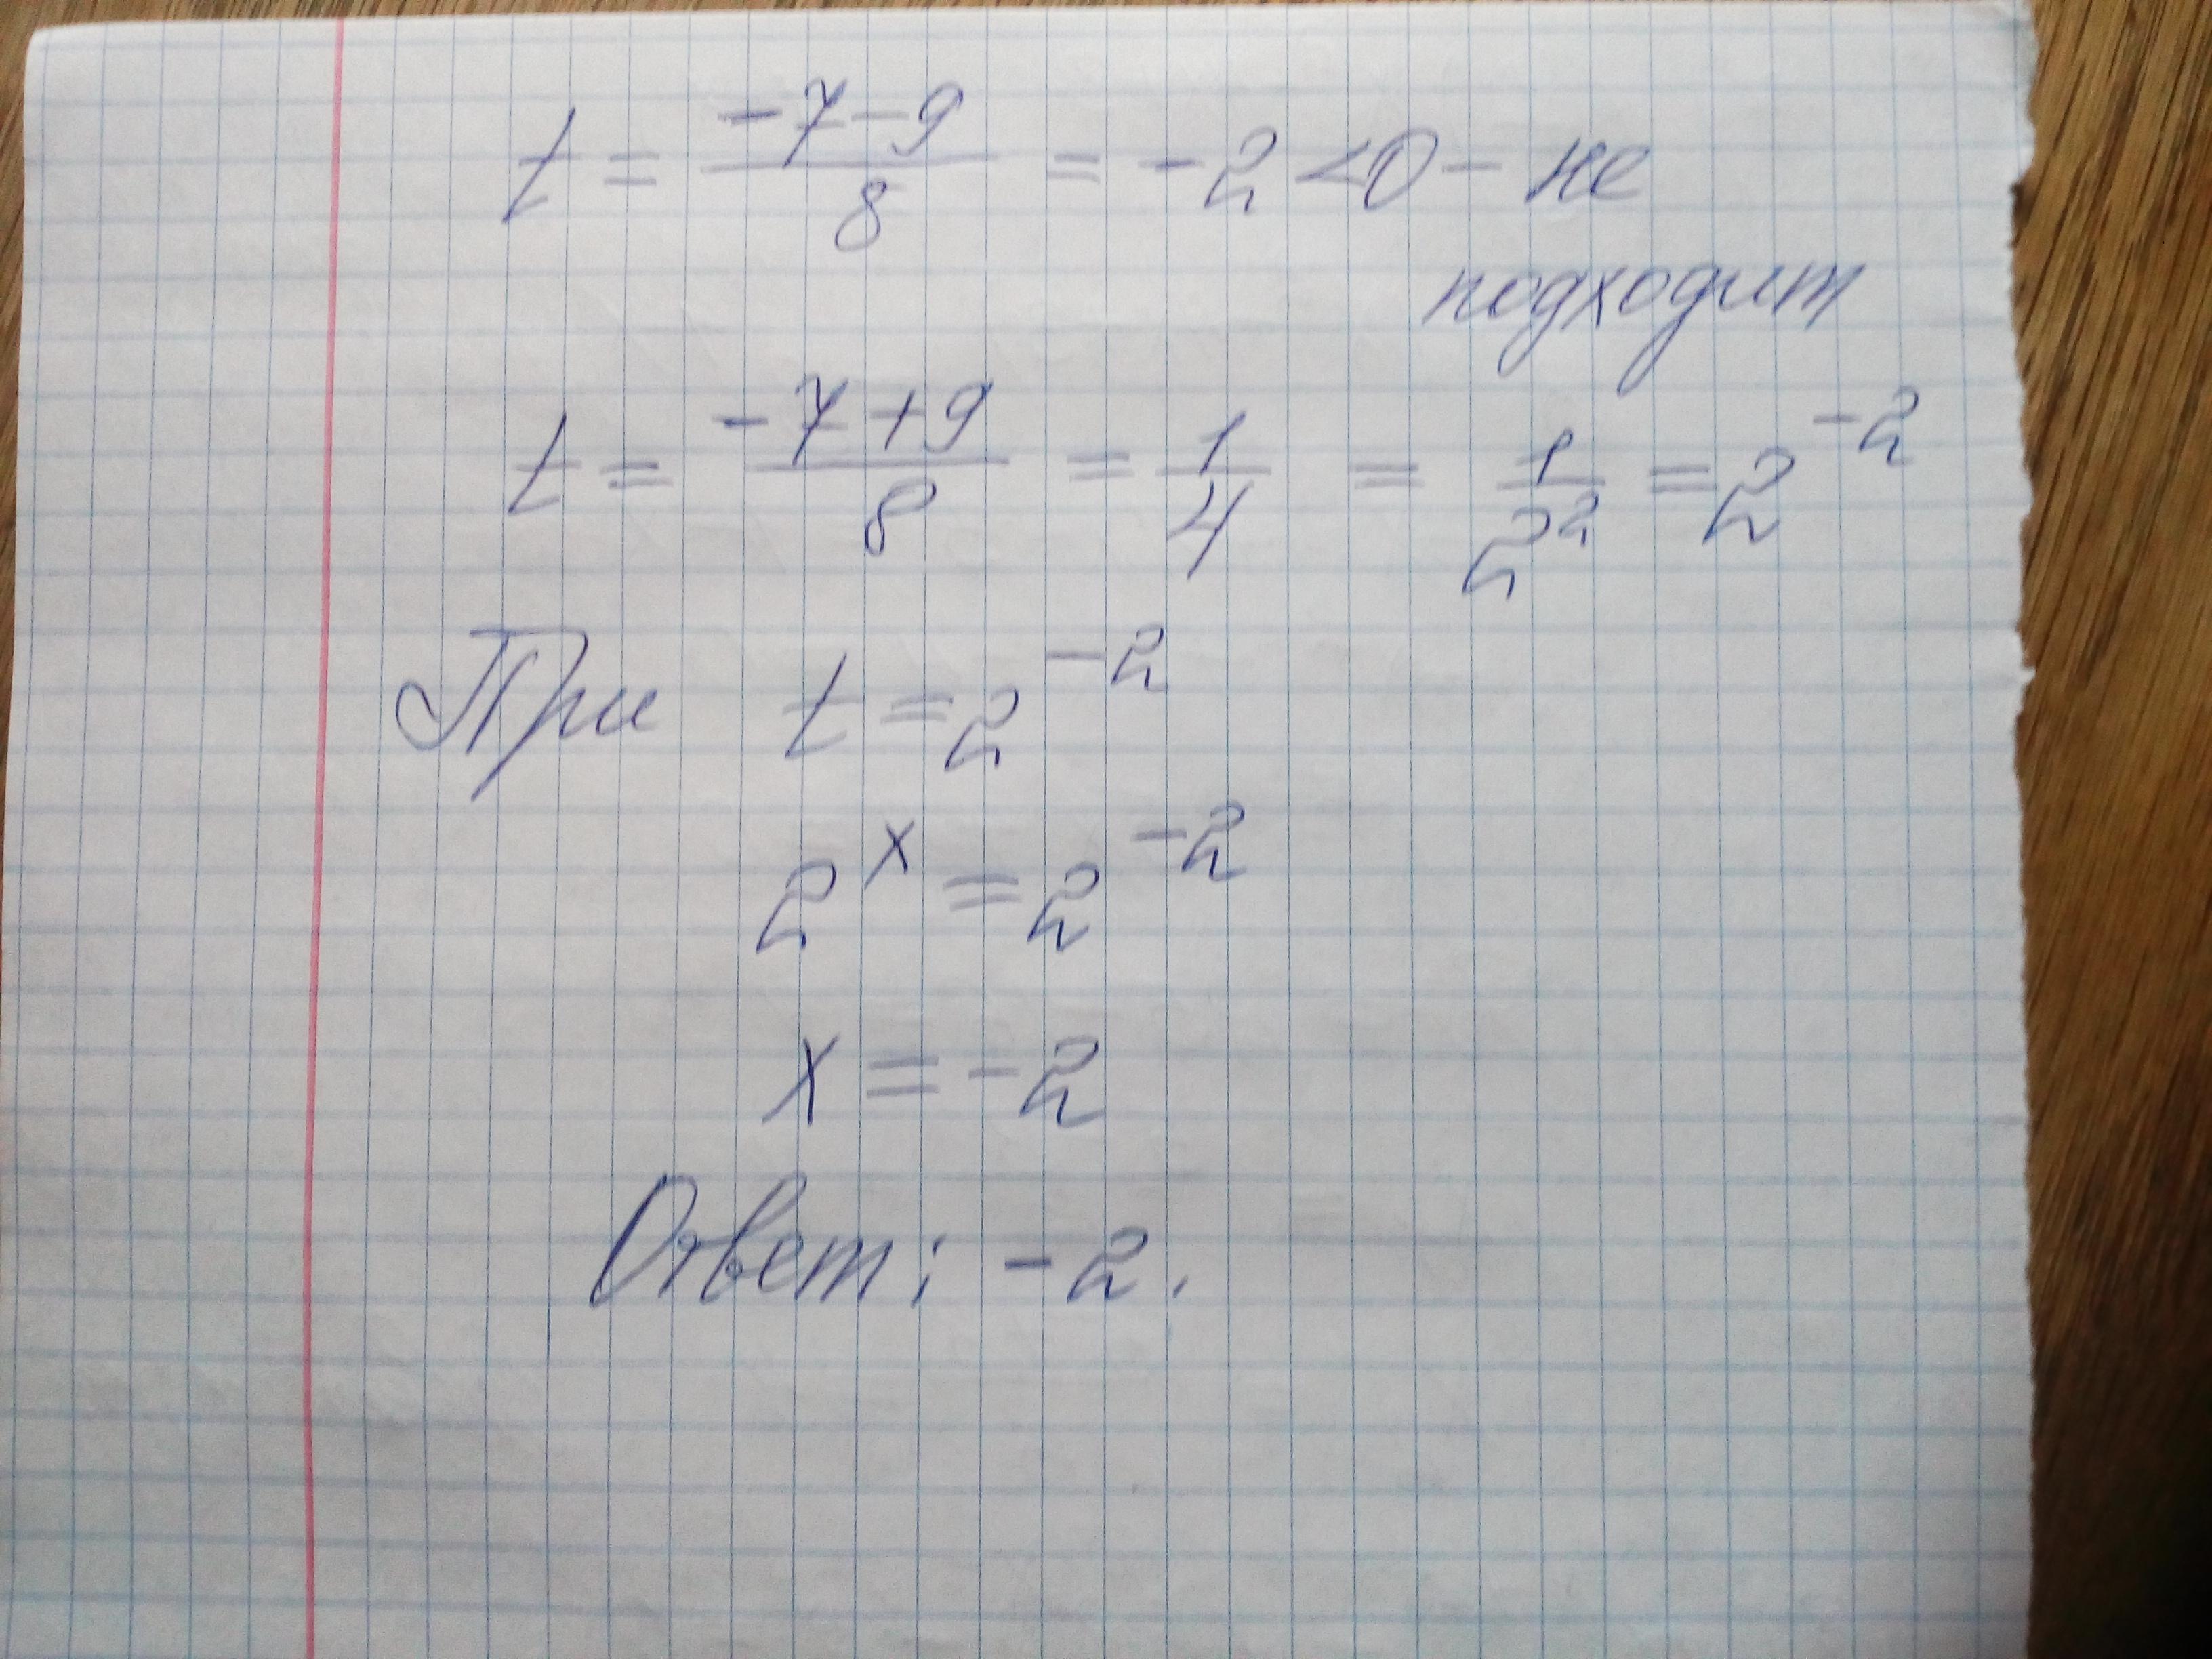 t = (-7-9)/8 = -2 < 0 - не
подходит
t = (-7+9)/8 = 1/4 = 1/2² = 2⁻²
При t = 2⁻²
2ˣ = 2⁻²
x = -2
Ответ: -2.